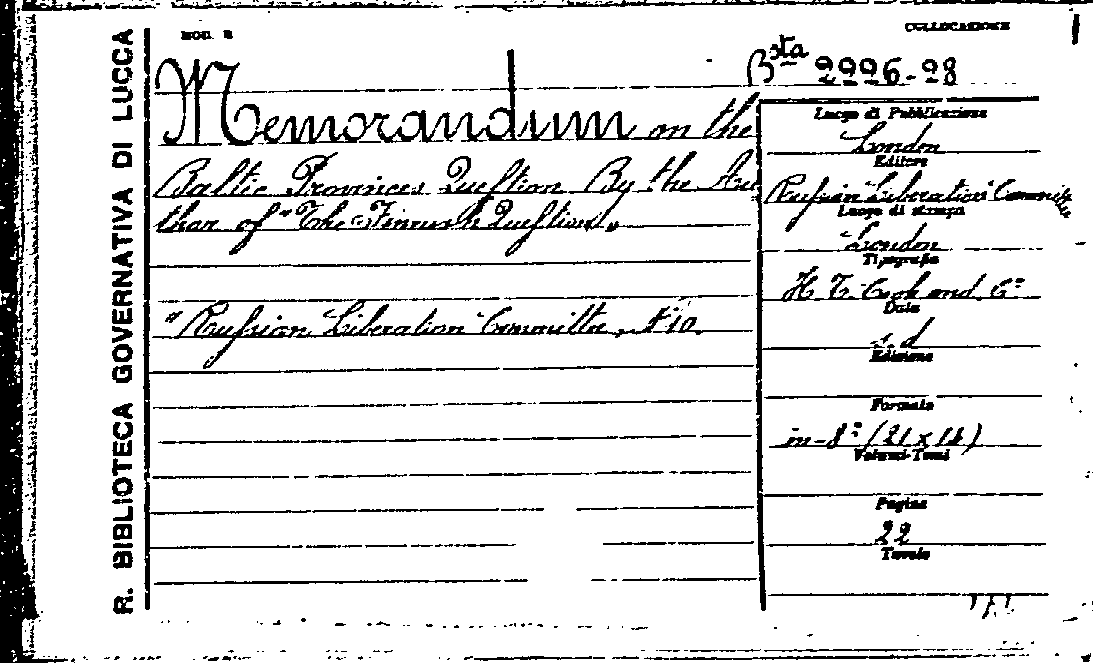 MOD. 2
COLLOCAZIONE
Bsta 2996-28
R. BIBLIOTECA GOVERNATIVA DI LUCCA
Memorandum on the
Baltic Provinces Question By the Au
thor of "The Finnish Question"
"Russian Liberation Committee, N° 10.
Luogo di Pubblicazione
London
Editore
Russian Liberation Committee
Luogo di stampa
London
Tipografia
H. T. Cook and C°
Data
s. d
Edizione
Formato
in-8° (21 x 14)
Volumi-Tomi
Pagine
22
Tavole